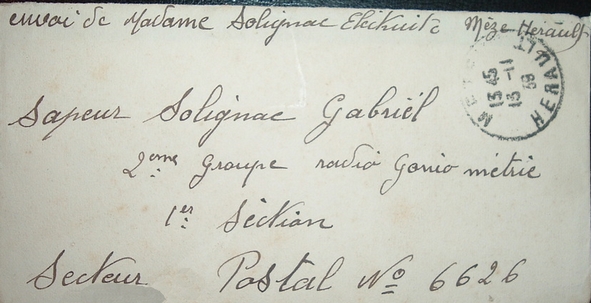 envoi de Madame Solignac Mèze Hérault
MEZE HERAULT
13 45
13 -11
39
Sapeur Solignac Gabriël
2ème Groupe radio Gonio métrie
1er Séction
Secteur Postal No 6626